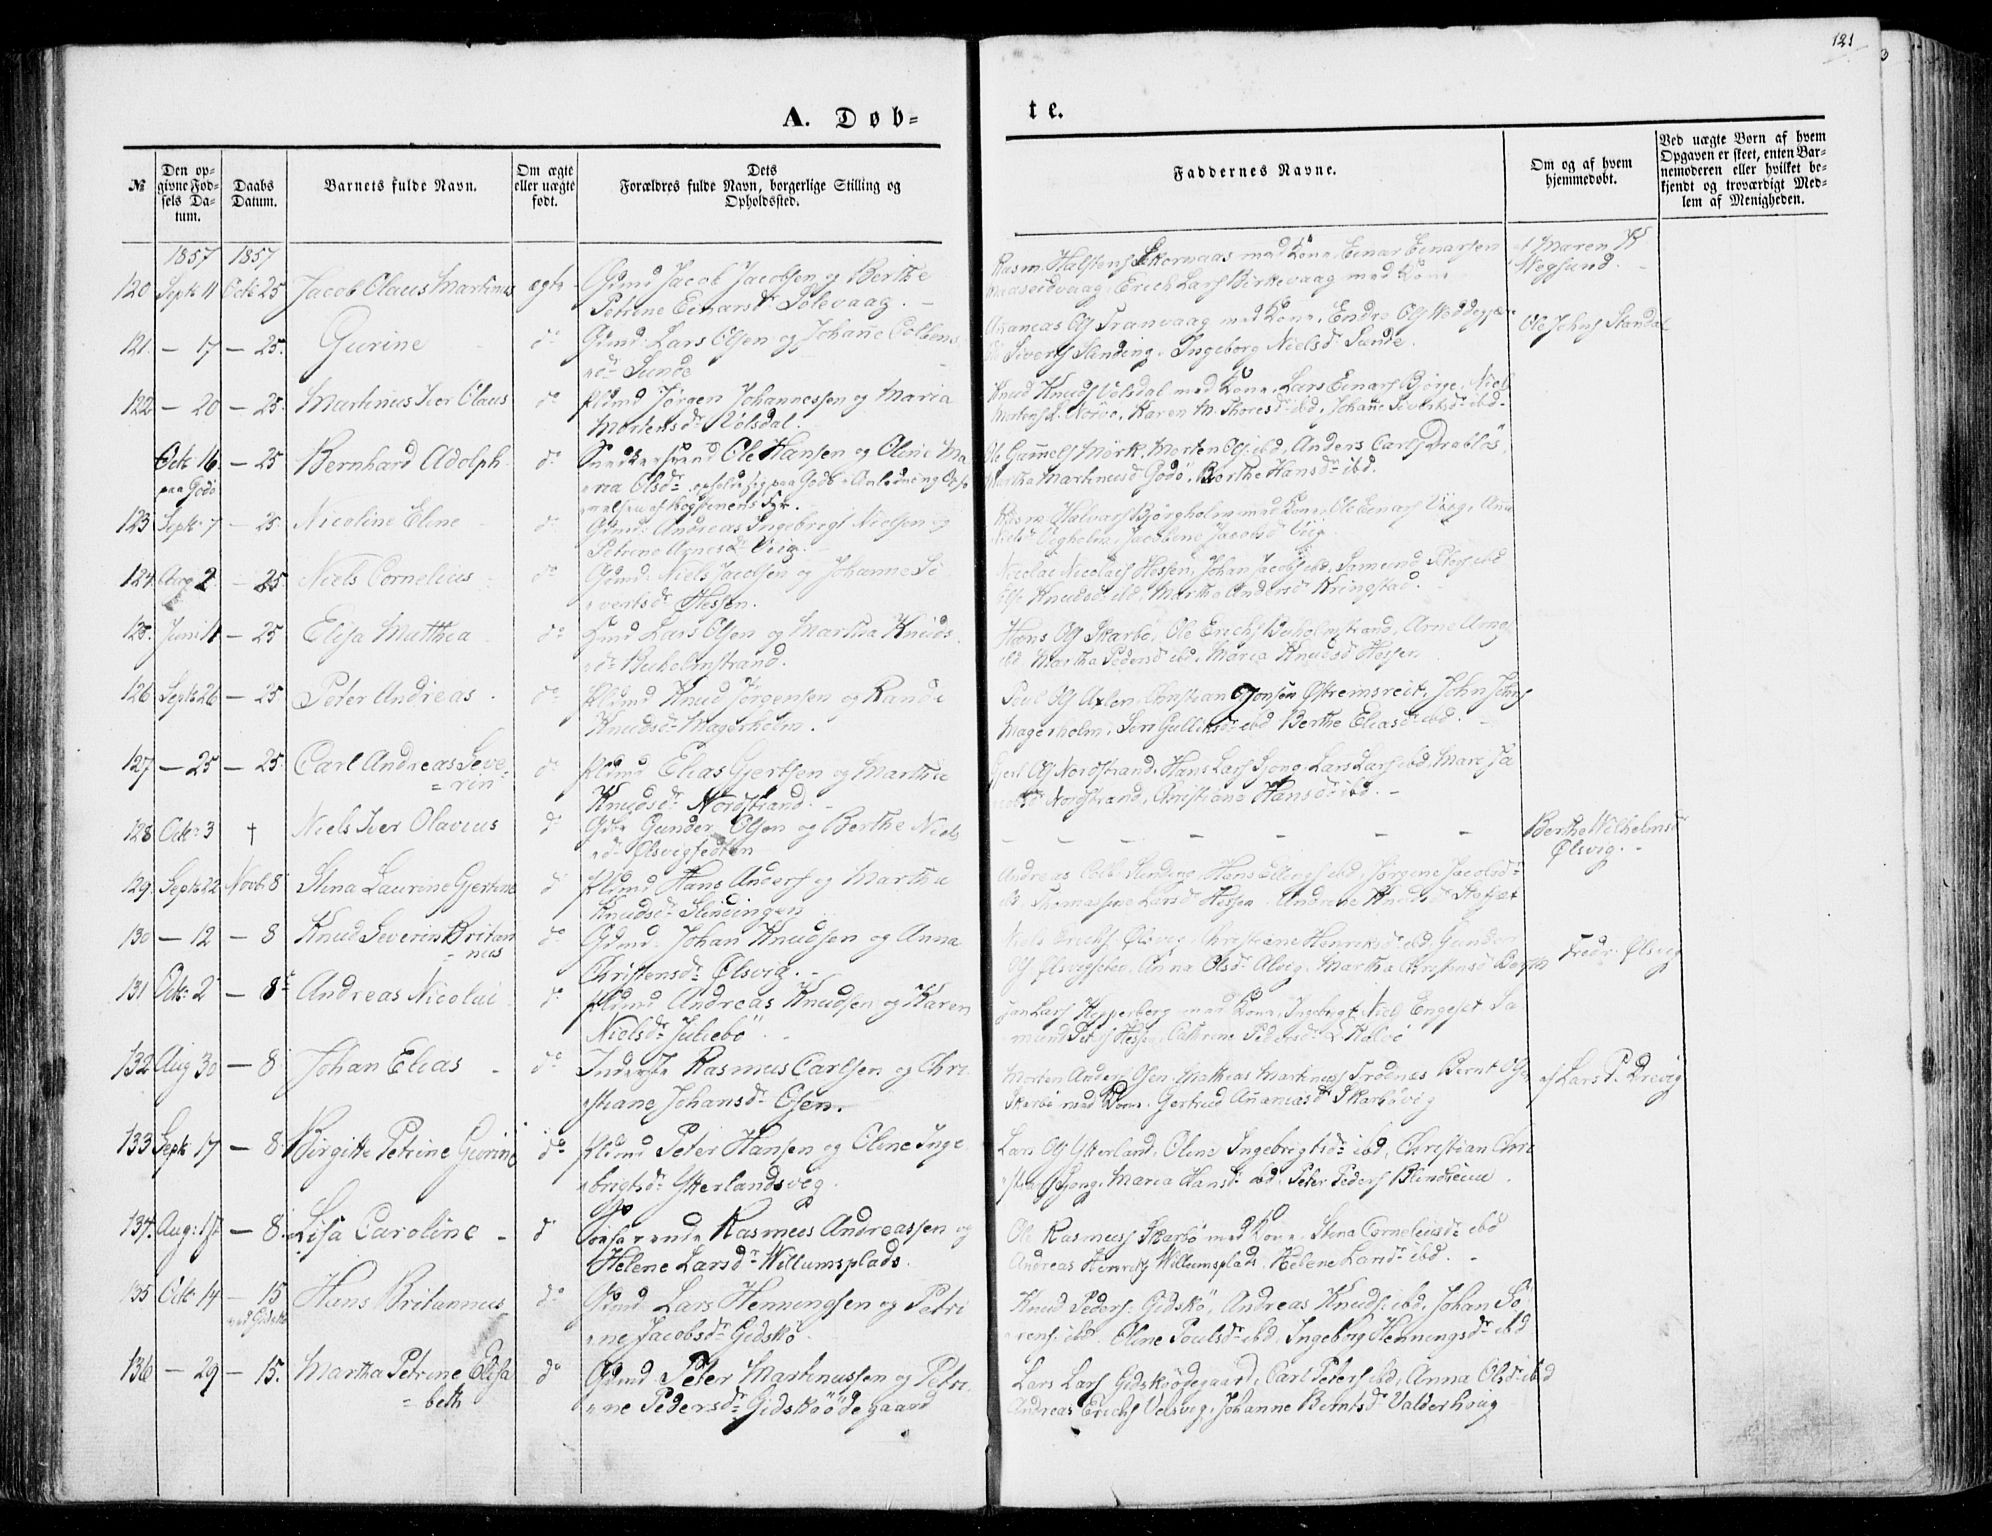 121
A. Døb-
te.
№
Den op-
givne Fød-
sels Da-
tum.
Daabs
Datum.
Barnets fulde Navn.
Om ægte
eller uægte
født.
Dets
Forældres fulde Navn, borgerlige Stilling og
Opholdssted.
Faddernes Navne.
Om og af hvem
hjemmedøbt.
Ved uægte Børn af hvem
Opgaven er skeet, enten Bar-
nemoderen eller hvilket be-
kjendt og troværdigt Med-
lem af Menigheden.
1857 1857
120 Septr 11 Octr 25 Jacob Claus Martinus ægte Gdmd Jacob Jacobsen og Berthe
Petrine Einarsdr Solevaag.
Rasm. Halstens Skornaas med Kone, Einar Einarsen
Maaseidvaag, Erich Lars Birkevaag med Kone
af Maren
Vegsund.
121. — 17 — 25. Gurine do Gdmd Lars Olsen og Johane
dr Sunde
Ananias Ols Tranvaag med Kone, Endre Ols
Siverts Slinding, Ingeborg Nielsdr Sunde.
Ole Johns Standal
122 — 20 — 25. Martinus Iver Claus do Plmd Jørgen Johannessen og Maria
Mortensdr Volsdal.
Knud Knuds Volsdal med Kone, Lars Einars Bjørge, Niels
Mortens Nørve, Karen M. Thoresdr ibd, Johane Sivertsdr ibd.
Octr 16 — 25 Bernhard Adolph do Snedkersvend Ole Hansen og Oline Ma
paa Godø
ria Olsdr opholde sig paa Godø i Anledning Opfø
relsen af Høgstenens Fyr.
Ole Gunnels Mørk, Morten Ols ibd, Anders Carls Drabløs,
Martha Martinusdr Godø, Berthe Hansdr ibd.
123 Septr 7 — 25 Nicoline Eline do Gdmd: Andreas Ingebrigt Nielsen og
Petrine Arnesdr Viig.
Rasm Halvars Bjørgholm med Kone, Ole Einars Viig, Anne
Jacobine Jacobsdr Viig
124. Aug 2 — 25 Niels Cornelius do Gdmd: Niels Jacobsen og Johanne Si
vertsdr Hessen.
Nicolai Nicolais Hessen, Johan Jacobs ibd, Samund Peters ibd
Knudsdr ibd, Martha Andersdr Kringstad.
125. Juni 11 — 25 Elisa Matthea do Hmd Lars Olsen og Martha Knuds
dr Buholmstrand.
Hans Ols Skarbø, Ole Erichs Buholmstrand, Arne Arnes
ibd Martha Pedersdr ibd, Maria Knudsdr Hessen
126 Septr 26 — 25 Peter Andreas do Plmd Knud Jørgensen og Randi
Knudsdr Magerholm.
Poul Ols Axlen, Christian Jonsen Østreimsreit, John Johns
Magerholm, Siri Gulliksdr ibd Berthe Eliasdr ibd.
127 — 25 — 25. Carl Andreas Seve
rin do Plmd Elias Gjertsen og Martha
Knudsdr Nordstrand.
Gjert Ols Nordstrand, Hans Lars Gjong, Lars Lars ibd, Mari Ja
Nordstrand, Christiane Hansdr ibd.
128 Octr 3 † Niels Iver Olavius do Gdbr Gunder Olsen og Berthe Niels
dr Ølsvigsedten
— — — — — —
Berthe Wilhelmsdr
Ølsvig.
129. Septr 22 Novbr 8 Stina Laurine Gjertine do Plmd Hans Anders og Martha
Knudsdr Slindingen
Andreas Slinding, Hans Ellings ibd, Jørgine Jacobsdr
ibd, Thomasine Larsdr Hessen, Andrine Knudsdr
130 — 12 — 8 Knud Severin Kritan
nus do Gdmd: Johan Knudsen og Anna
Christensdr Ølsvig.
Niels Erichs Ølsvig, Christiane Henriksdr ibd, Gunder
Ols Ølsvigsetr, Anna Olsdr Alvig, Martha Christensdr
Fredr. Ølsvig
131 Octr 2 — 8 Andreas Nicolai do Plmd Andreas Knudsen og Karen
Nielsdr Juliebø
Jan Lars Hepperberg med Kone, Ingebrigt Niels Engeset, Sa
mund Peters Hessen, Cathrine Pedersdr
132 Aug 30 — 8 Johan Elias do Inderste Rasmus Carlsen og Chri
stiane Johansdr Osen.
Morten Anders Osen, Mathias Martinus Frødnes Bernt Ols
Skarbø med Kone, Gertrud Ananiasdr Skarbøvig
af Lars P. Brevig
133 Septr 17 — 8 Birgitte Petrine Gurine do Plmd Peter Hansen og Oline Inge
brigtsdr Ytterlandsveg.
Lars Ols Ytterland, Oline Ingebrigtsdr ibd, Christian Chri
Gjong, Maria Hansdr ibd. Peter Peders Blindheim
134. Aug: 15 — 8. Lisa Caroline do Søefarende Rasmus Andreassen og
Helene Larsdr Willumsplads.
Ole Rasmus Skarbø med Kone, Stina Corneliusdr ibd
Andreas Henriks Willumsplads, Helene Larsdr ibd.
135 Octr 14 — 15 Hans Kritannus do Gdmd Lars Henningsen og Petri
ved Gidskø
ne Jacobsdr Gidskø
Knud Peders: Gidskø, Andreas Knuds: ibd, Johan Sø
rens: ibd. Oline Poulsdr ibd, Ingeborg Henningsdr ibd
136 — 29 — 15. Martha Petrine Elisa
beth do Gdmd Peter Martinussen og Petri
ne Pedersdr Gidskøødegaard
Lars Lars Gidskøødegaard, Carl Peters ibd, Anna Olsdr ibd
Andreas Erichs Velsvig, Johanne Berntsdr Valderhoug